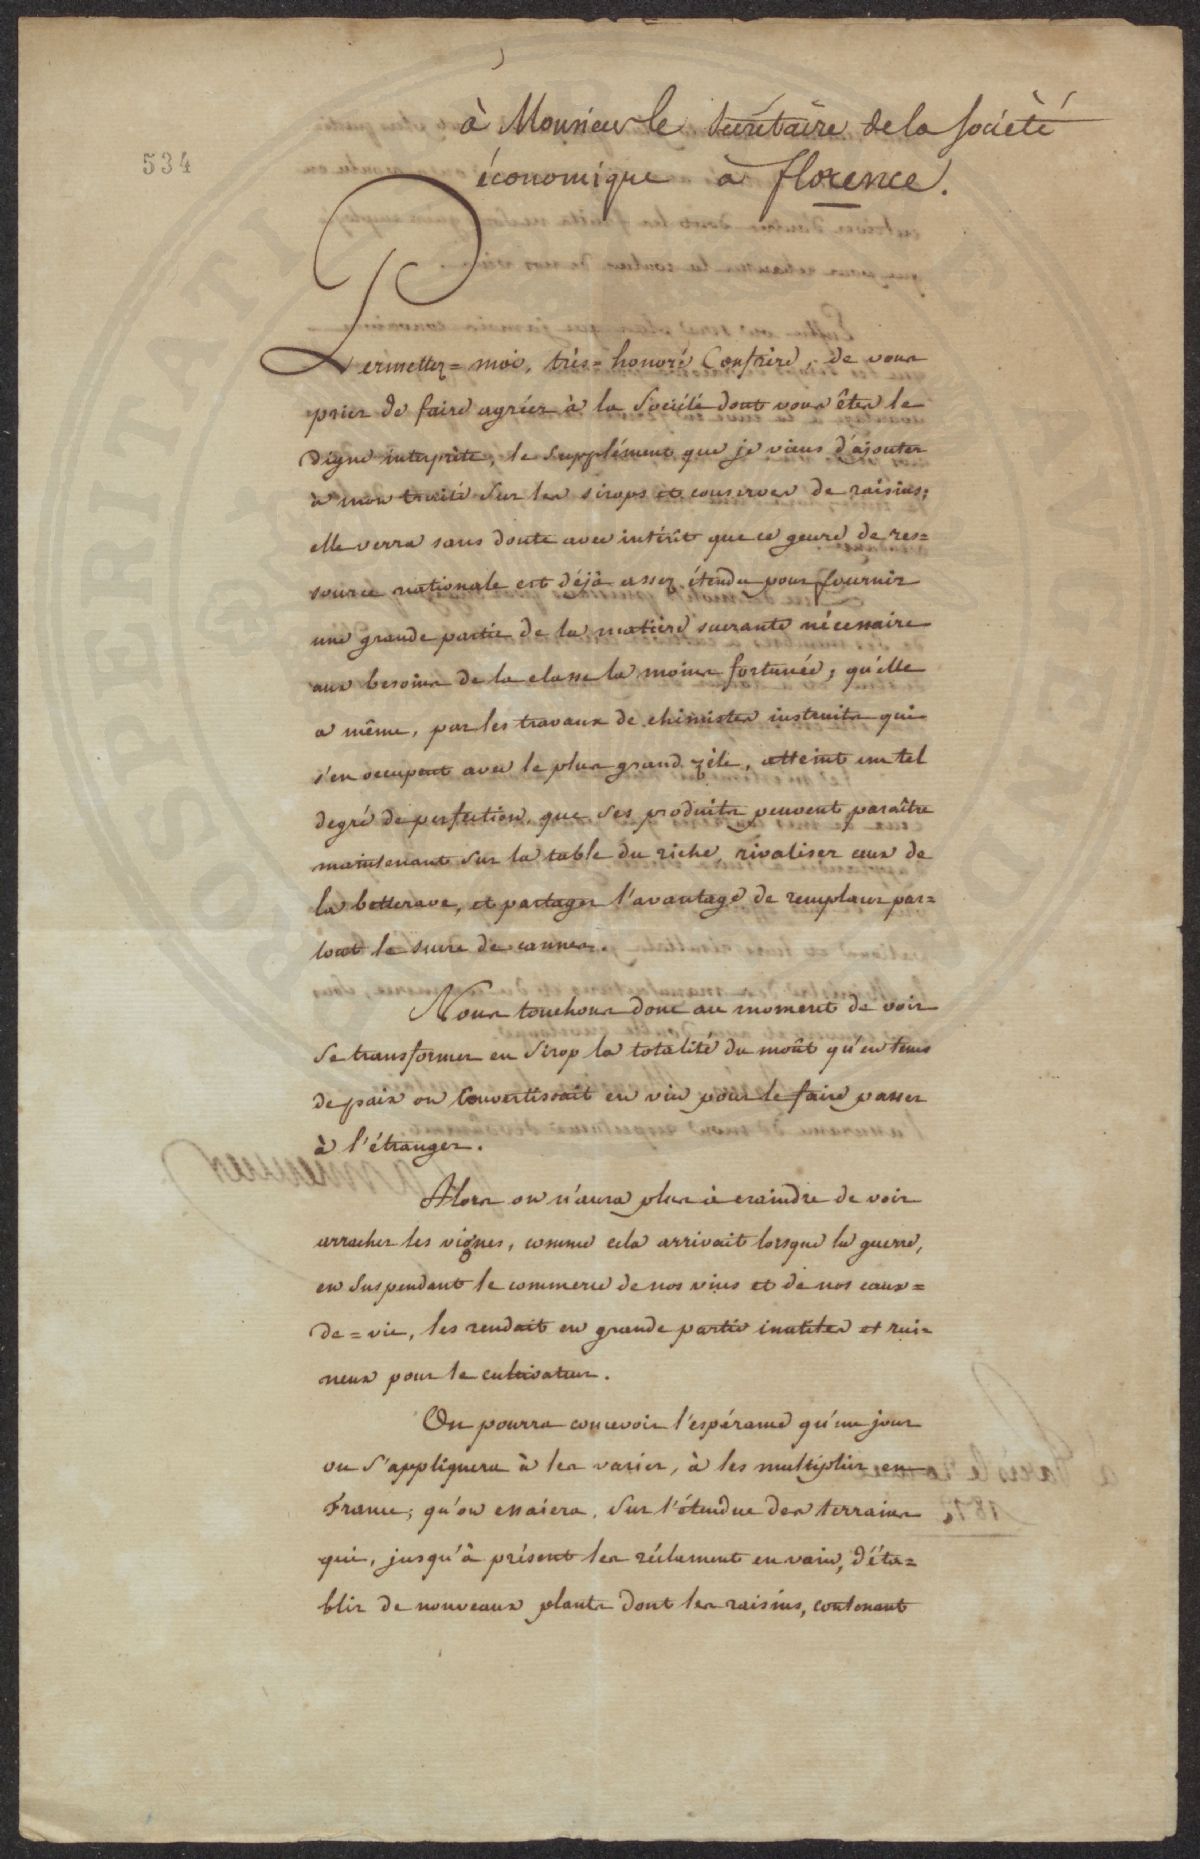 534
à Monsieur le secrétaire de la Société
économique à florence.
Permettez=moi, très=honoré Confrère, de vous
prier de faire agréer à la Société dont vous êtes le
digne interprète, le supplément que je viens d'ajouter
à mon traité sur les sirops et conserves de raisins;
elle verra sans doute avec intérêt que ce genre de res=
source nationale est déjà assez étendu pour fournir
une grande partie de la matière sucrante nécessaire
aux besoins de la classe la moins fortunée; qu'elle
a même, par les travaux de chimistes instruits qui
s'en occupent avec le plus grand zèle, atteint un tel
degré de perfection, que ses produits peuvent paraître
maintenant sur la table du riche, rivaliser ceux de
la betterave, et partager l'avantage de remplacer par=
tout le sucre de cannes.
Nous touchons donc au moment de voir
se transformer en sirop la totalité du moût qu'en tems
de paix on convertissait en vin pour le faire passer
à l'étranger.
Alors on n'aura plus à craindre de voir
arracher les vignes, comme cela arrivait lorsque la guerre,
en suspendant le commerce de nos vins et de nos eaux=
de=vie, les rendait en grande partie inutiles et rui=
neux pour le cultivateur.
On pourra concevoir l'espérance qu'un jour
on s'appliquera à les varier, à les multiplier en
France; qu'on essaiera, sur l'étendue des terrains
qui, jusqu'à présent les réclament en vain, d'éta=
blir de nouveaux plants dont les raisins, contenant